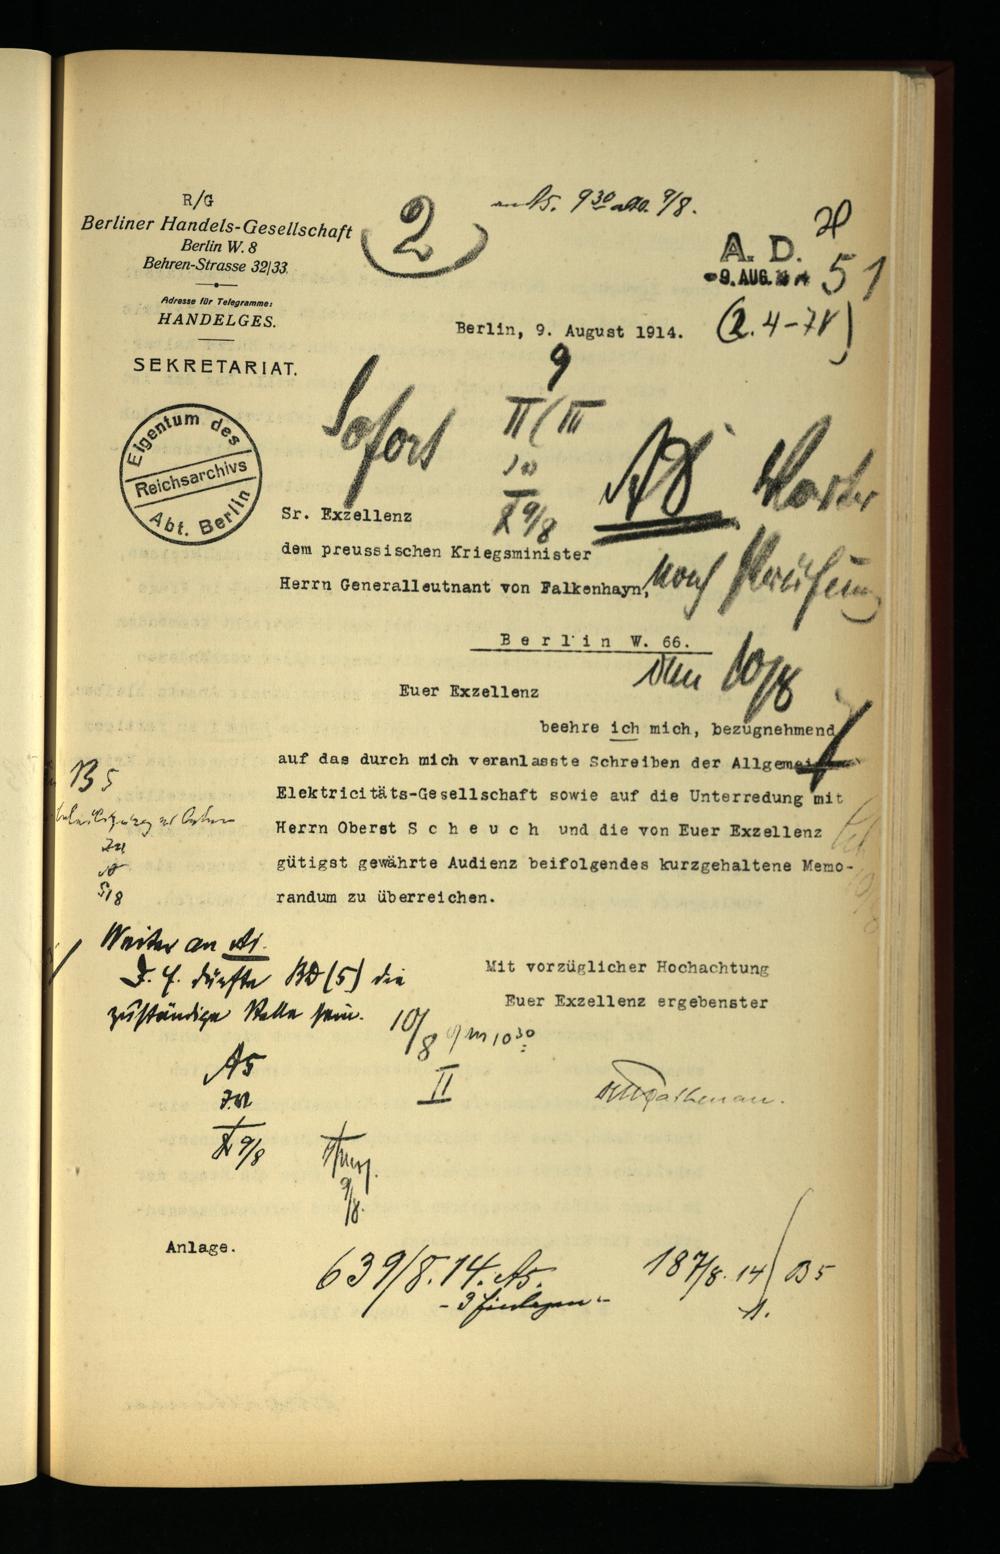 R/G
Berliner Handels-Gesellschaft
Berlin W. 8
Behren-Strasse 32/33
Adresse für Telegramme:
HANDELGES.
SEKRETARIAT.
2
A5. 9 30 9/8.
A. D.
-9. AUG.
51
(2. 4-7V)
Berlin, 9. August 1914.
Eigentum des
Reichsarchivs
Abt. Berlin
Sofort
9
II (III
9/8
Sr. Exzellenz
dem preussischen Kriegsminister
Herrn Generalleutnant von Falkenhayn,
nach Prüfung
Berlin W. 66.
10/8
Euer Exzellenz
beehre ich mich, bezugnehmend
auf das durch mich veranlasste Schreiben der Allgemeinen
Elektricitäts-Gesellschaft sowie auf die Unterredung mit
Herrn Oberst Scheuch und die von Euer Exzellenz
gütigst gewährte Audienz beifolgendes kurzgehaltene Memo-
randum zu überreichen.
B5
Weiter an
D. E. dürfte BD (5) die
zuständige Stelle sein.
10/8 10 30
II
A5
9/8
9/8.
Mit vorzüglicher Hochachtung
Euer Exzellenz ergebenster
Anlage.
639/8.14. A5.
- 3 Einlagen -
187/8. 14 B5